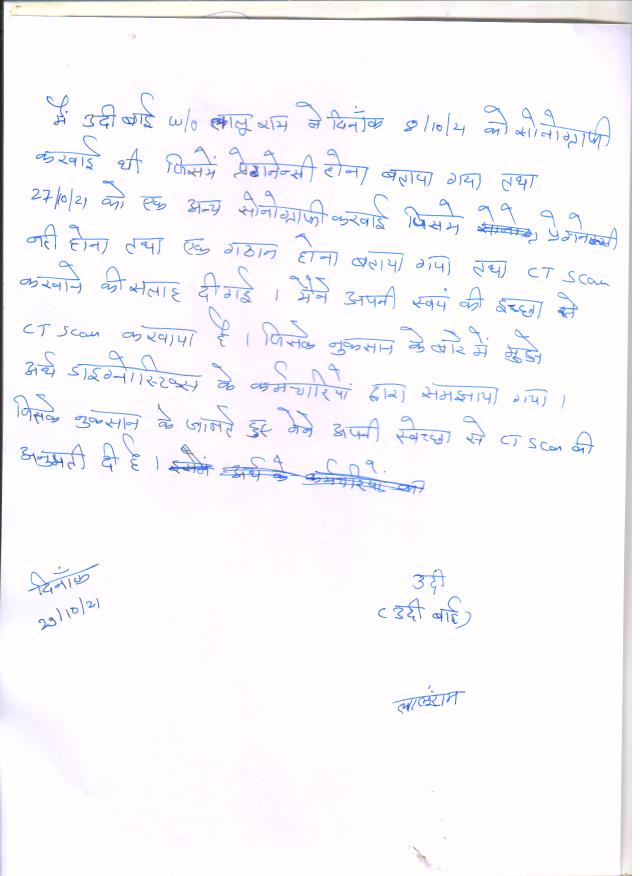 मैं उदी बाई w/o लालू राम ने दिनाँक 8/10/21 को सोनोग्राफी
करवाई थी जिसमें प्रेगनेन्सी होना बताया गया तथा
27/10/21 को एक अन्य सोनोग्राफी करवाई जिसमे प्रेगनेन्सी
नही होना तथा एक गठान होना बताया गया तथा CT Scan
करवाने की सलाह दी गई । मैने अपनी स्वयं की इच्छा से
CT Scan करवाया है । जिसके नुकसान के बारे में मुझे
अर्थ डाइग्नोस्टिक्स के कर्मचारियों द्वारा समझाया गया ।
जिसके नुकसान के जानते हुए मेने अपनी स्वेच्छा से CT Scan की
अनुमती दी है । अर्थ के कर्मचारियों
दिनाँक
29/10/21
उदी
(उदी बाई)
लालुराम